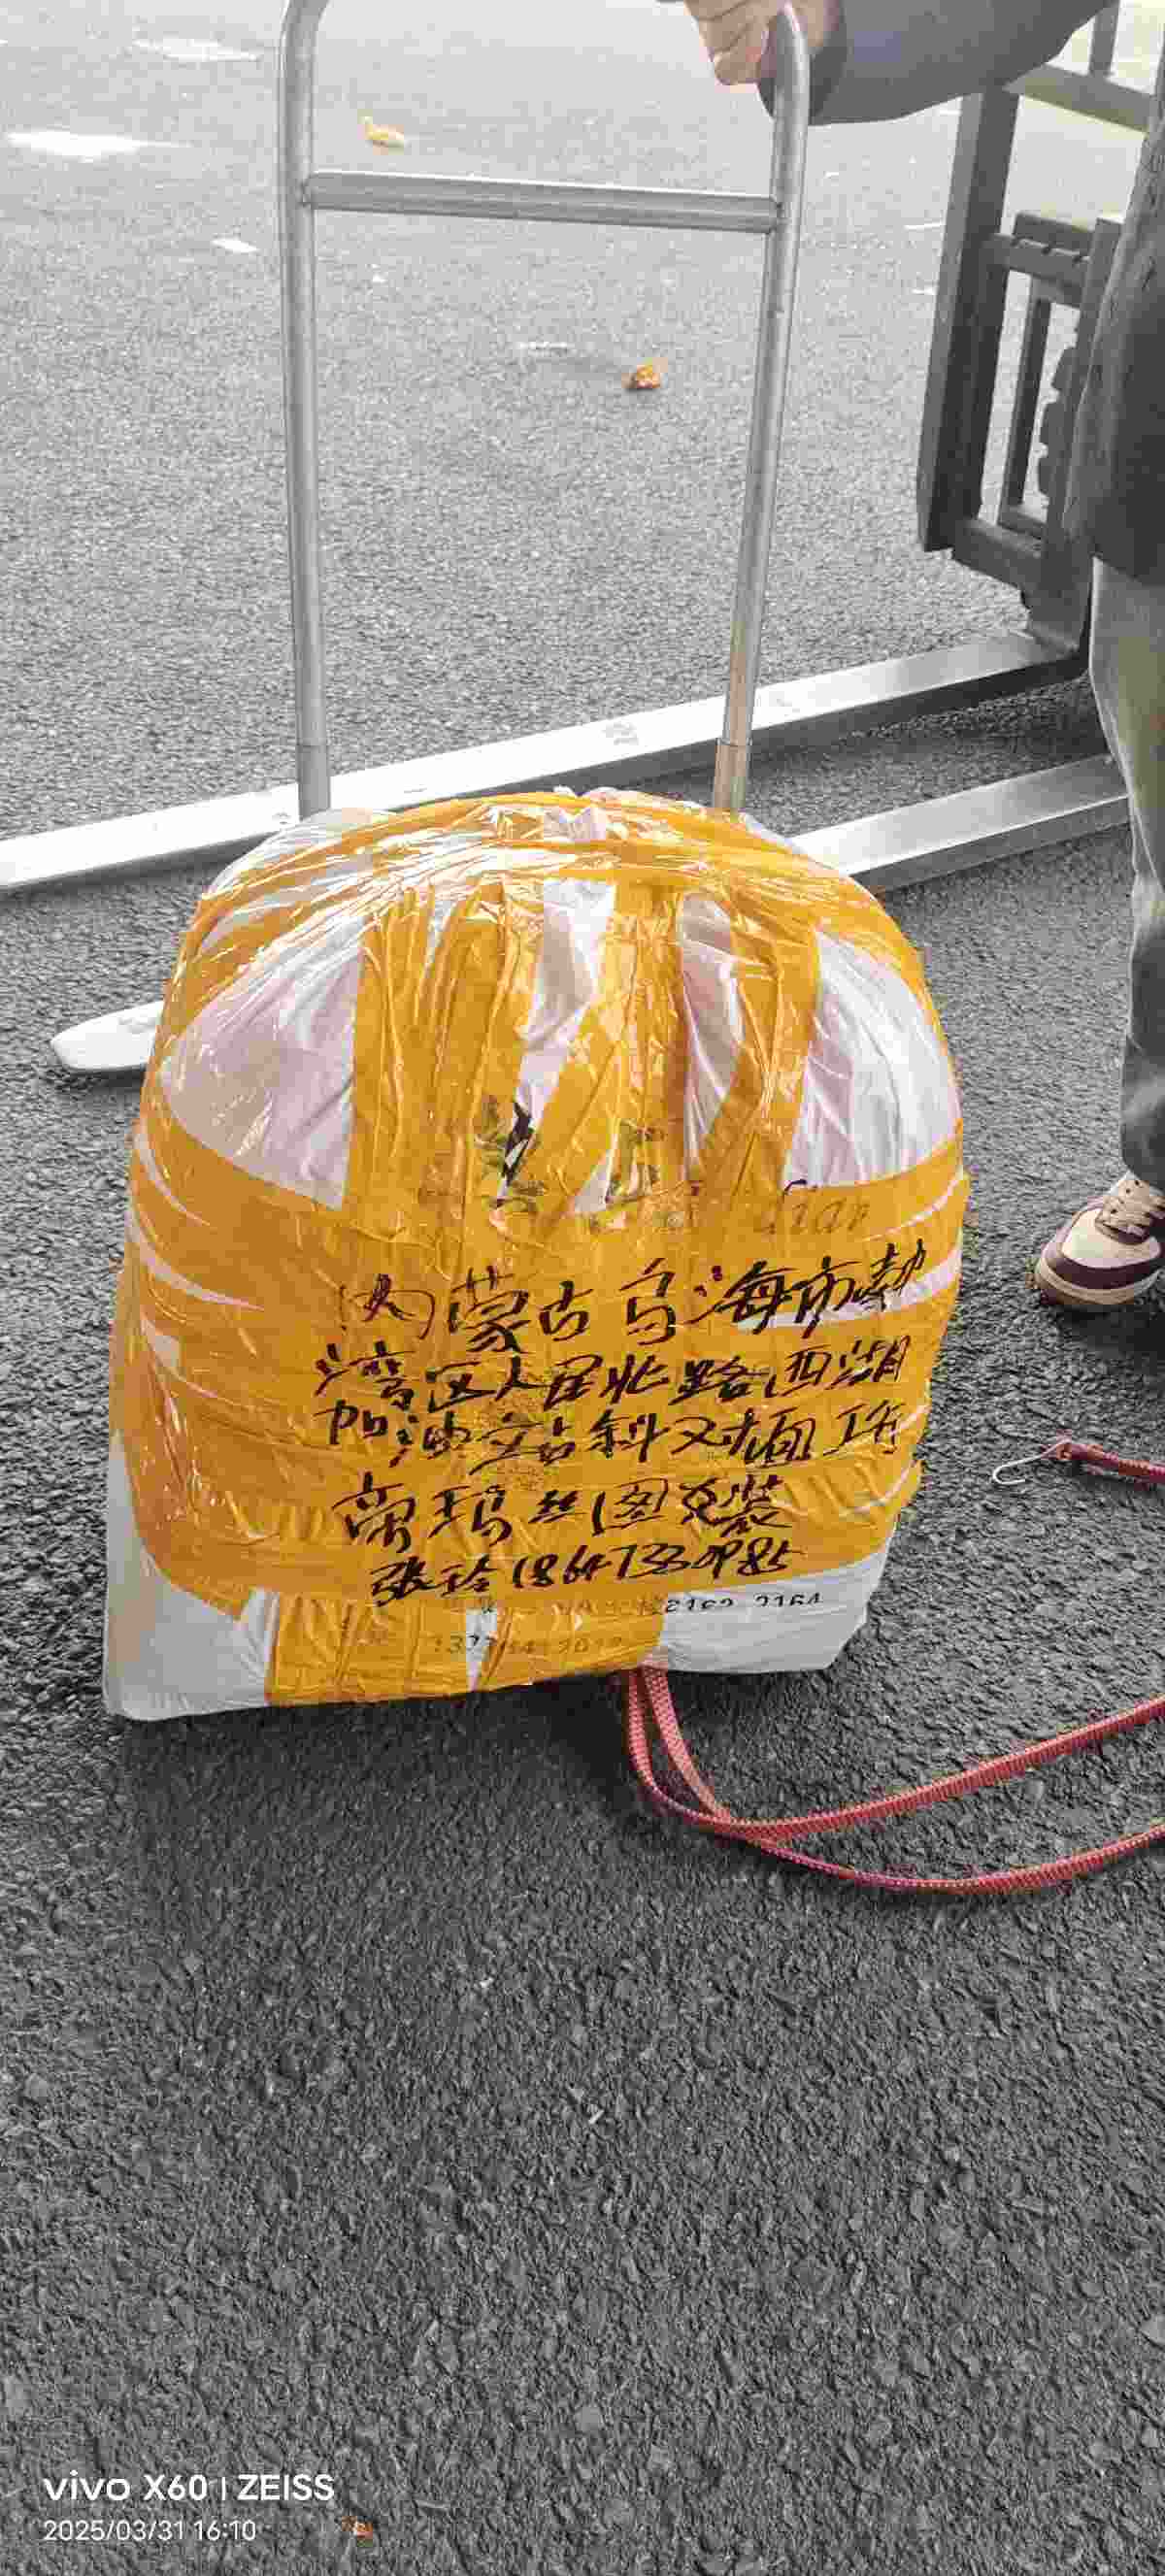 dian
内蒙古乌海市勃
湾区人民北路西湖
加油站斜对面工行
高玛丝图女装
张玲18647330985
2162 2164
vivo X60 | ZEISS
2025/03/31 16:10